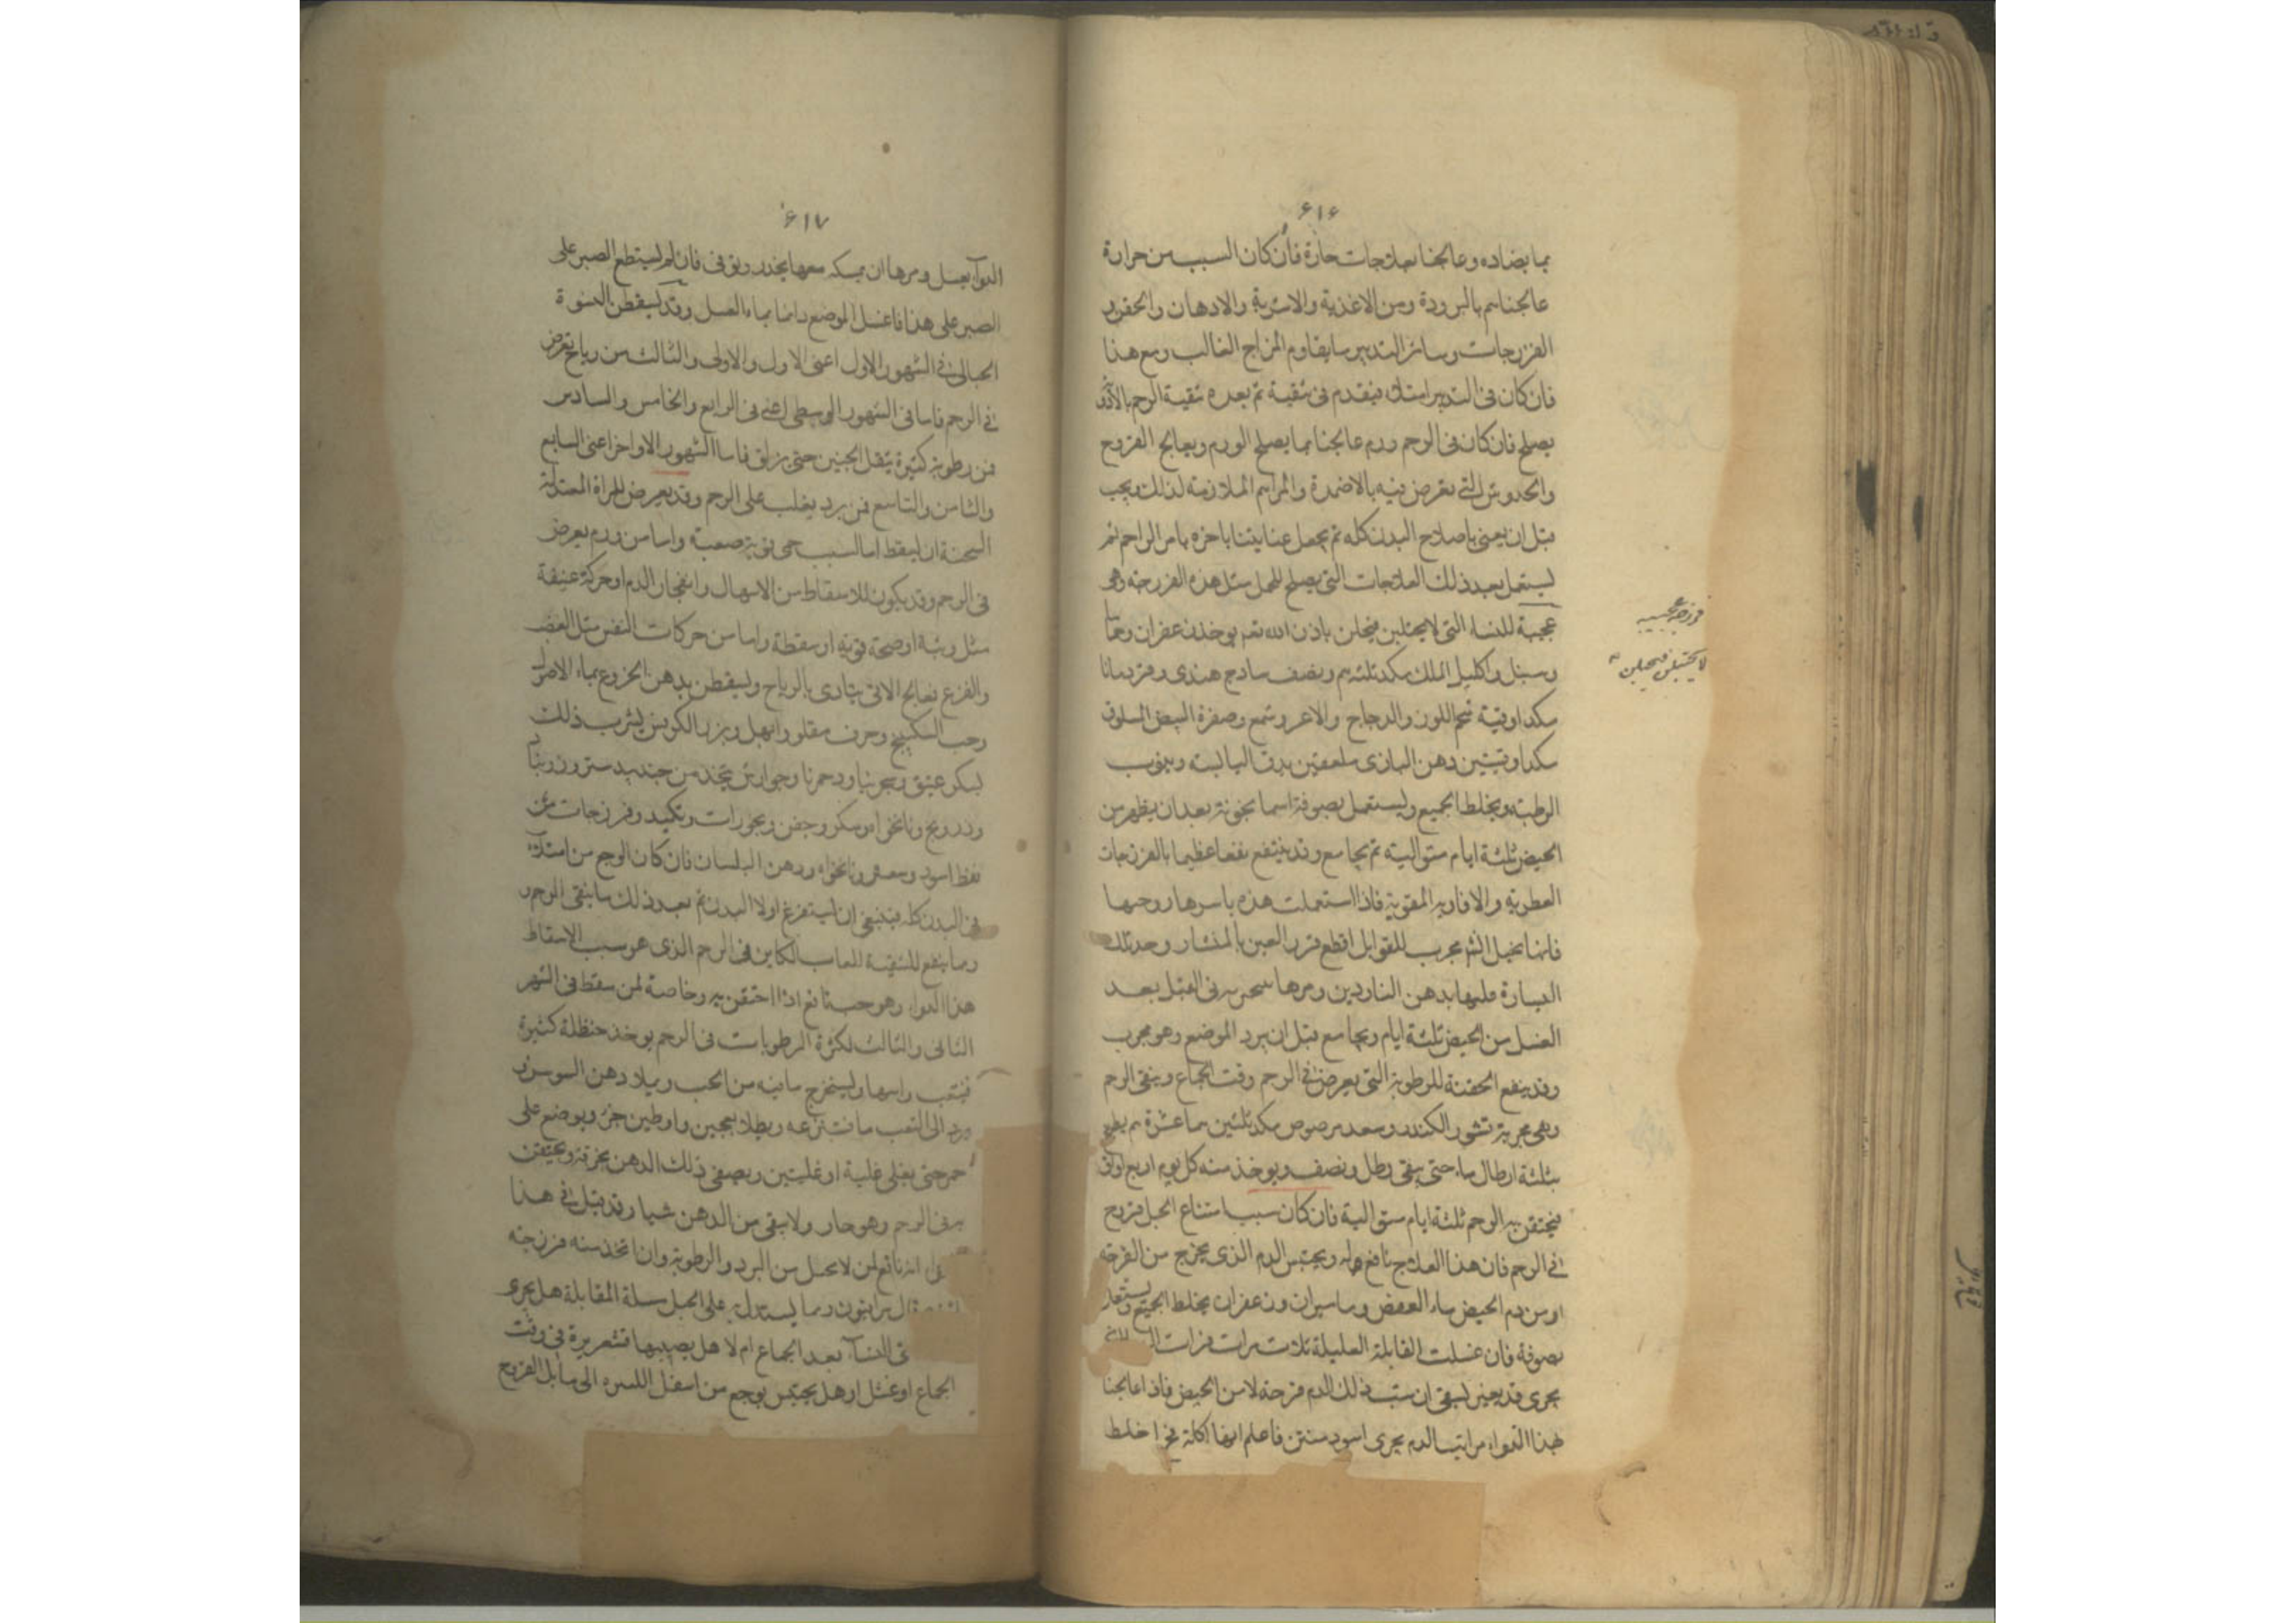 ۶۱۶
بما يضاده وعالجنا بعلاجات حارة فان كان السبب من حرارة
عالجناهم بالبرودة ومن الاغذية والاشربة والادهان والحقن و
الفرزجات وسائر التدبير ما يقاوم المزاج الغالب ومع هذا
فان كان فى التدبير امتلاء فيقدم فى تنقية ثم بعده تنقية الرحم
يصلح فان كان فى الرحم ورم عالجنا بما يصلح الورم ويعالج القروح
والخدوش التى يعرض فيه بالاضمدة والمراهم الملازمة لذلك ويجب
قبل ان يعنى باصلاح البدن كله ثم يجعل عنايتنا باخره بامر الراحم ثم
يستعمل بعد ذلك العلاجات التى يصلح للحمل مثل هذه الفرزجة وهى
عجيبة للنساء التى لا يحبلن فيحبلن باذن الله تعم يوخذ زعفران وحماما
وسنبل واكليل الملك مكد ثلثة هم ونصف سادج هندى وقردمانا
مكد اوقية شحم اللوز والدجاج والاعر وشمع وصفرة البيض المسلوق
مكد اوقيتين دهن البازى ملعقتين
الرطبة ويخلط الجميع ويستعمل بصوفة اسمانجونة بعد ان يظهر من
الحيض ثلثة ايام متوالية ثم يجامع وقد ينتفع نفعا عظيما بالفرزجات
العطرية والافاويه المقوية فاذا استعملت هذه باسرها
فانها تحبل اقطع قرن العين بالمنشار وخذ تلك
البرادة بدهن الناردين ومرها فى القبل بعد
الغسل من الحيض ثلثة ايام ويجامع قبل ان يبرد الموضع وهو مجرب
وقد ينفع الحقنة للرطوبة التى يعرض فى الرحم وقت الجماع وينقى الرحم
وهى مجربة قشور الكندر وسعد مرضوض مكد ثلثين عشرة هم يطبخ
بثلثة ارطال ماء حتى يبقى رطل ونصف ويوخذ منه كل يوم اربع اواق
فيحتقن به الرحم ثلثة ايام متوالية فان كان سبب امتناع الحبل قروح
فى الرحم فان هذا العلاج نافع له ويحتبس الدم الذى يخرج من القرحة
او من دم الحيض ماء العفص وماميران وزعفران يخلط الجميع ويستعمل
بصوفة فان غسلت القابلة العليلة ثلاث مرات
يجرى قد يعنى ان سبب ذلك الدم قرحة لا من الحيض فاذا عالجنا
بهذا الدواء الدم يجرى اسود منتن فاعلم انها اكلة
فرزجة عجيبة
لا يحبلن فيحبلن
۶۱۷
الدواء بعسل ومرها ان يمسكه معها بحذر وتوقى فان لم يستطع الصبر على
الصبر على هذا فاغسل الموضع دائما بماء العسل وقد يسقطن النسوة
الحبالى فى الشهور الاول اعنى الاول والاولى والثالث من رياح تعرض
فى الرحم فاما فى الشهور الوسطى اعنى فى الرابع والخامس والسادس
فمن رطوبة كثيرة يثقل الجنين حتى يزلق فاما الشهور الاواخر اعنى السابع
والثامن والتاسع فمن برد يغلب على الرحم وقد يعرض للمراة المعتدلة
السحنة ان يسقط اما لسبب حمى نوبة صعبة واما من ورم يعرض
فى الرحم وقد يكون للاسقاط من الاسهال وانفجار الدم او حركة عنيفة
مثل وثبة او صيحة قوية او سقطة واما من حركات النفس مثل الغضب
والفزع يعالج الاتى يتاذى بالرياح ويسقطن بدهن الخروع بماء الاصول
وحب السكبينج وحرف مقلو وابهل وبزر الكرفس يشرب ذلك
بسكر عتيق وسجزنيا ودحمرتا وجوارش يتخذ من جندبيدستر وزرنباد
ودرونج ونانخواه وسكر وحقن وبخورات وتكميد وفرزجات من
نفط اسود وسعتر ونانخواه ودهن البلسان فان كان الوجع من امتلاء
فى البدن كله فينبغى ان يستفرغ اولا البدن ثم بعد ذلك ما ينقى الرحم و
ومما ينفع للتنقية اللعاب الكاين فى الرحم الذى هو سبب الاسقاط
هذا الدواء وهو نافع اذا احتقن به وخاصة لمن سقط فى الشهر
الثانى والثالث لكثرة الرطوبات فى الرحم يوخذ حنظلة كبيرة
فيثقب راسها ويستخرج ما فيه من الحب ويملا دهن السوسن و
ورد الى الثقب ما قد نزعه ويطلا بعجين او طين ويوضع على
جمر حتى يغلى غلية او غليتين ويصفى ذلك الدهن بخرقة ويحتقن
به فى الرحم وهو حار ولا يبقى من الدهن شيا وقد قيل فى هذا
انه نافع لمن لا يحبل من البرد والرطوبة وان اتخذ منه فرزجة
قال ومما يستدل به على الحبل مسلة المقابلة هل يجرى
فى النساء بعد الجماع ام لا هل يصيبها قشعريرة فى وقت
الجماع او غشى او هل يحتبس بوجع من اسفل السره الى ما يلى الفروج